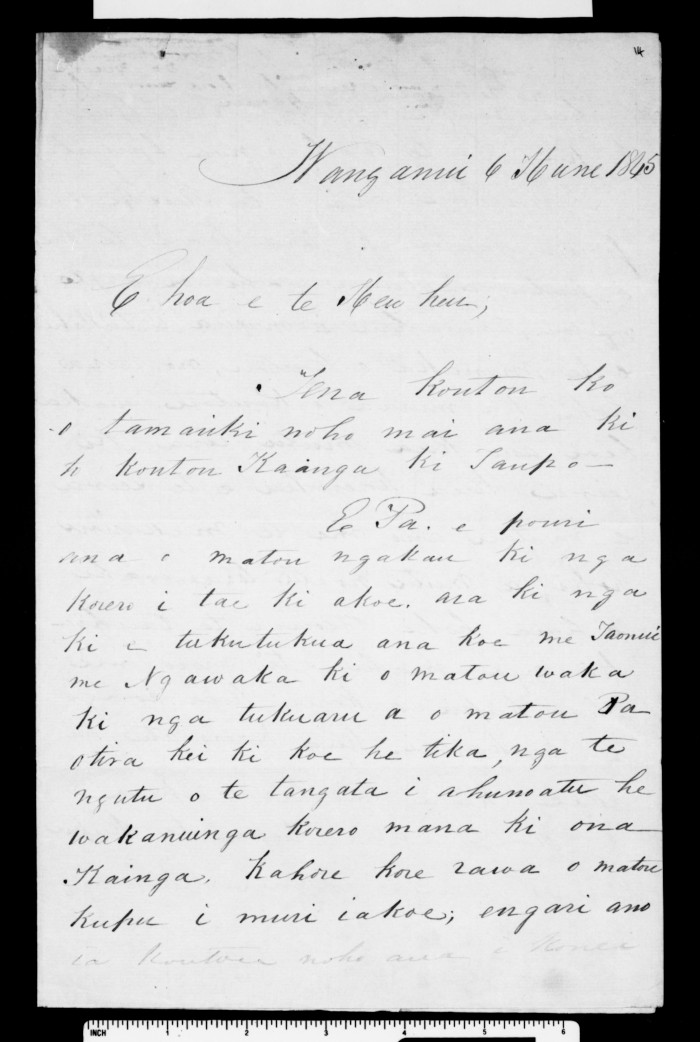 14
Wanganui 6 Hune 1845
E hoa e te Heu heu;
Tena koutou ko
o tamariki noho mai ana ki
to koutou Kaainga ki Taupo—
E Pa. e pouri
ana o matou ngakau ki nga
korero i tae ki akoe. ara ki nga
ki e tukutukua ana koe me Taonui
me Ngawaka ki o matou waka
ki nga tukuaru a o matou Pa
otira kei ki koe he tika, nga te
ngutu o te tangata i ahu noatu he
wakanuinga korero mana ki ona
Kainga. kahore kore rawa o matou
kupu i muri iakoe; engari ano
ia koutou noho ana i
INCH 1 2 3 4 5 6